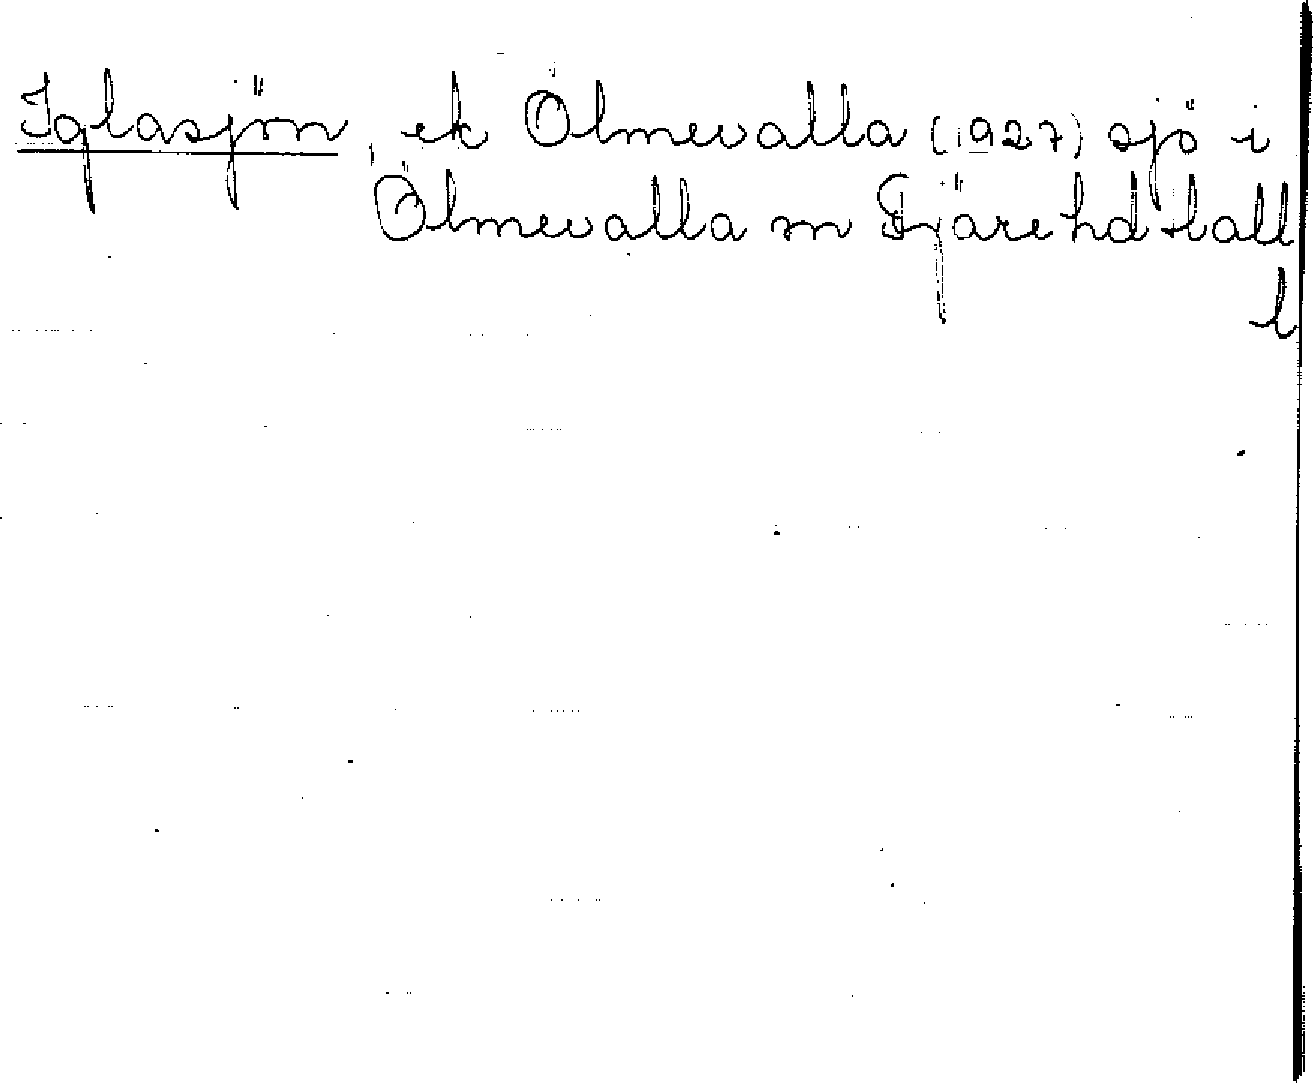 Iglasjön, ek Ölmevalla (1927) sjö i
Ölmevalla sn Fjäre hd Hall
l